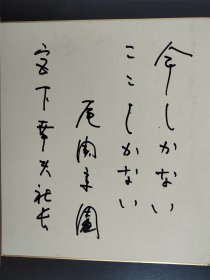 今しかない
ここしかない
尾関宗園
宮下幸夫社長